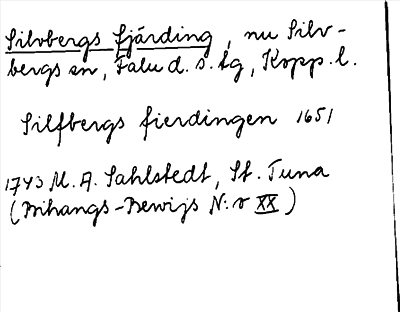 Silvbergs fjärding, nu Silv-
bergs sn, Falu d. s. tg, Kopp. l.
Silfbergs fierdingen 1651
1743 M. A. Sahlstedt, St. Tuna
(Bihangs-Bewijs N:o XX)